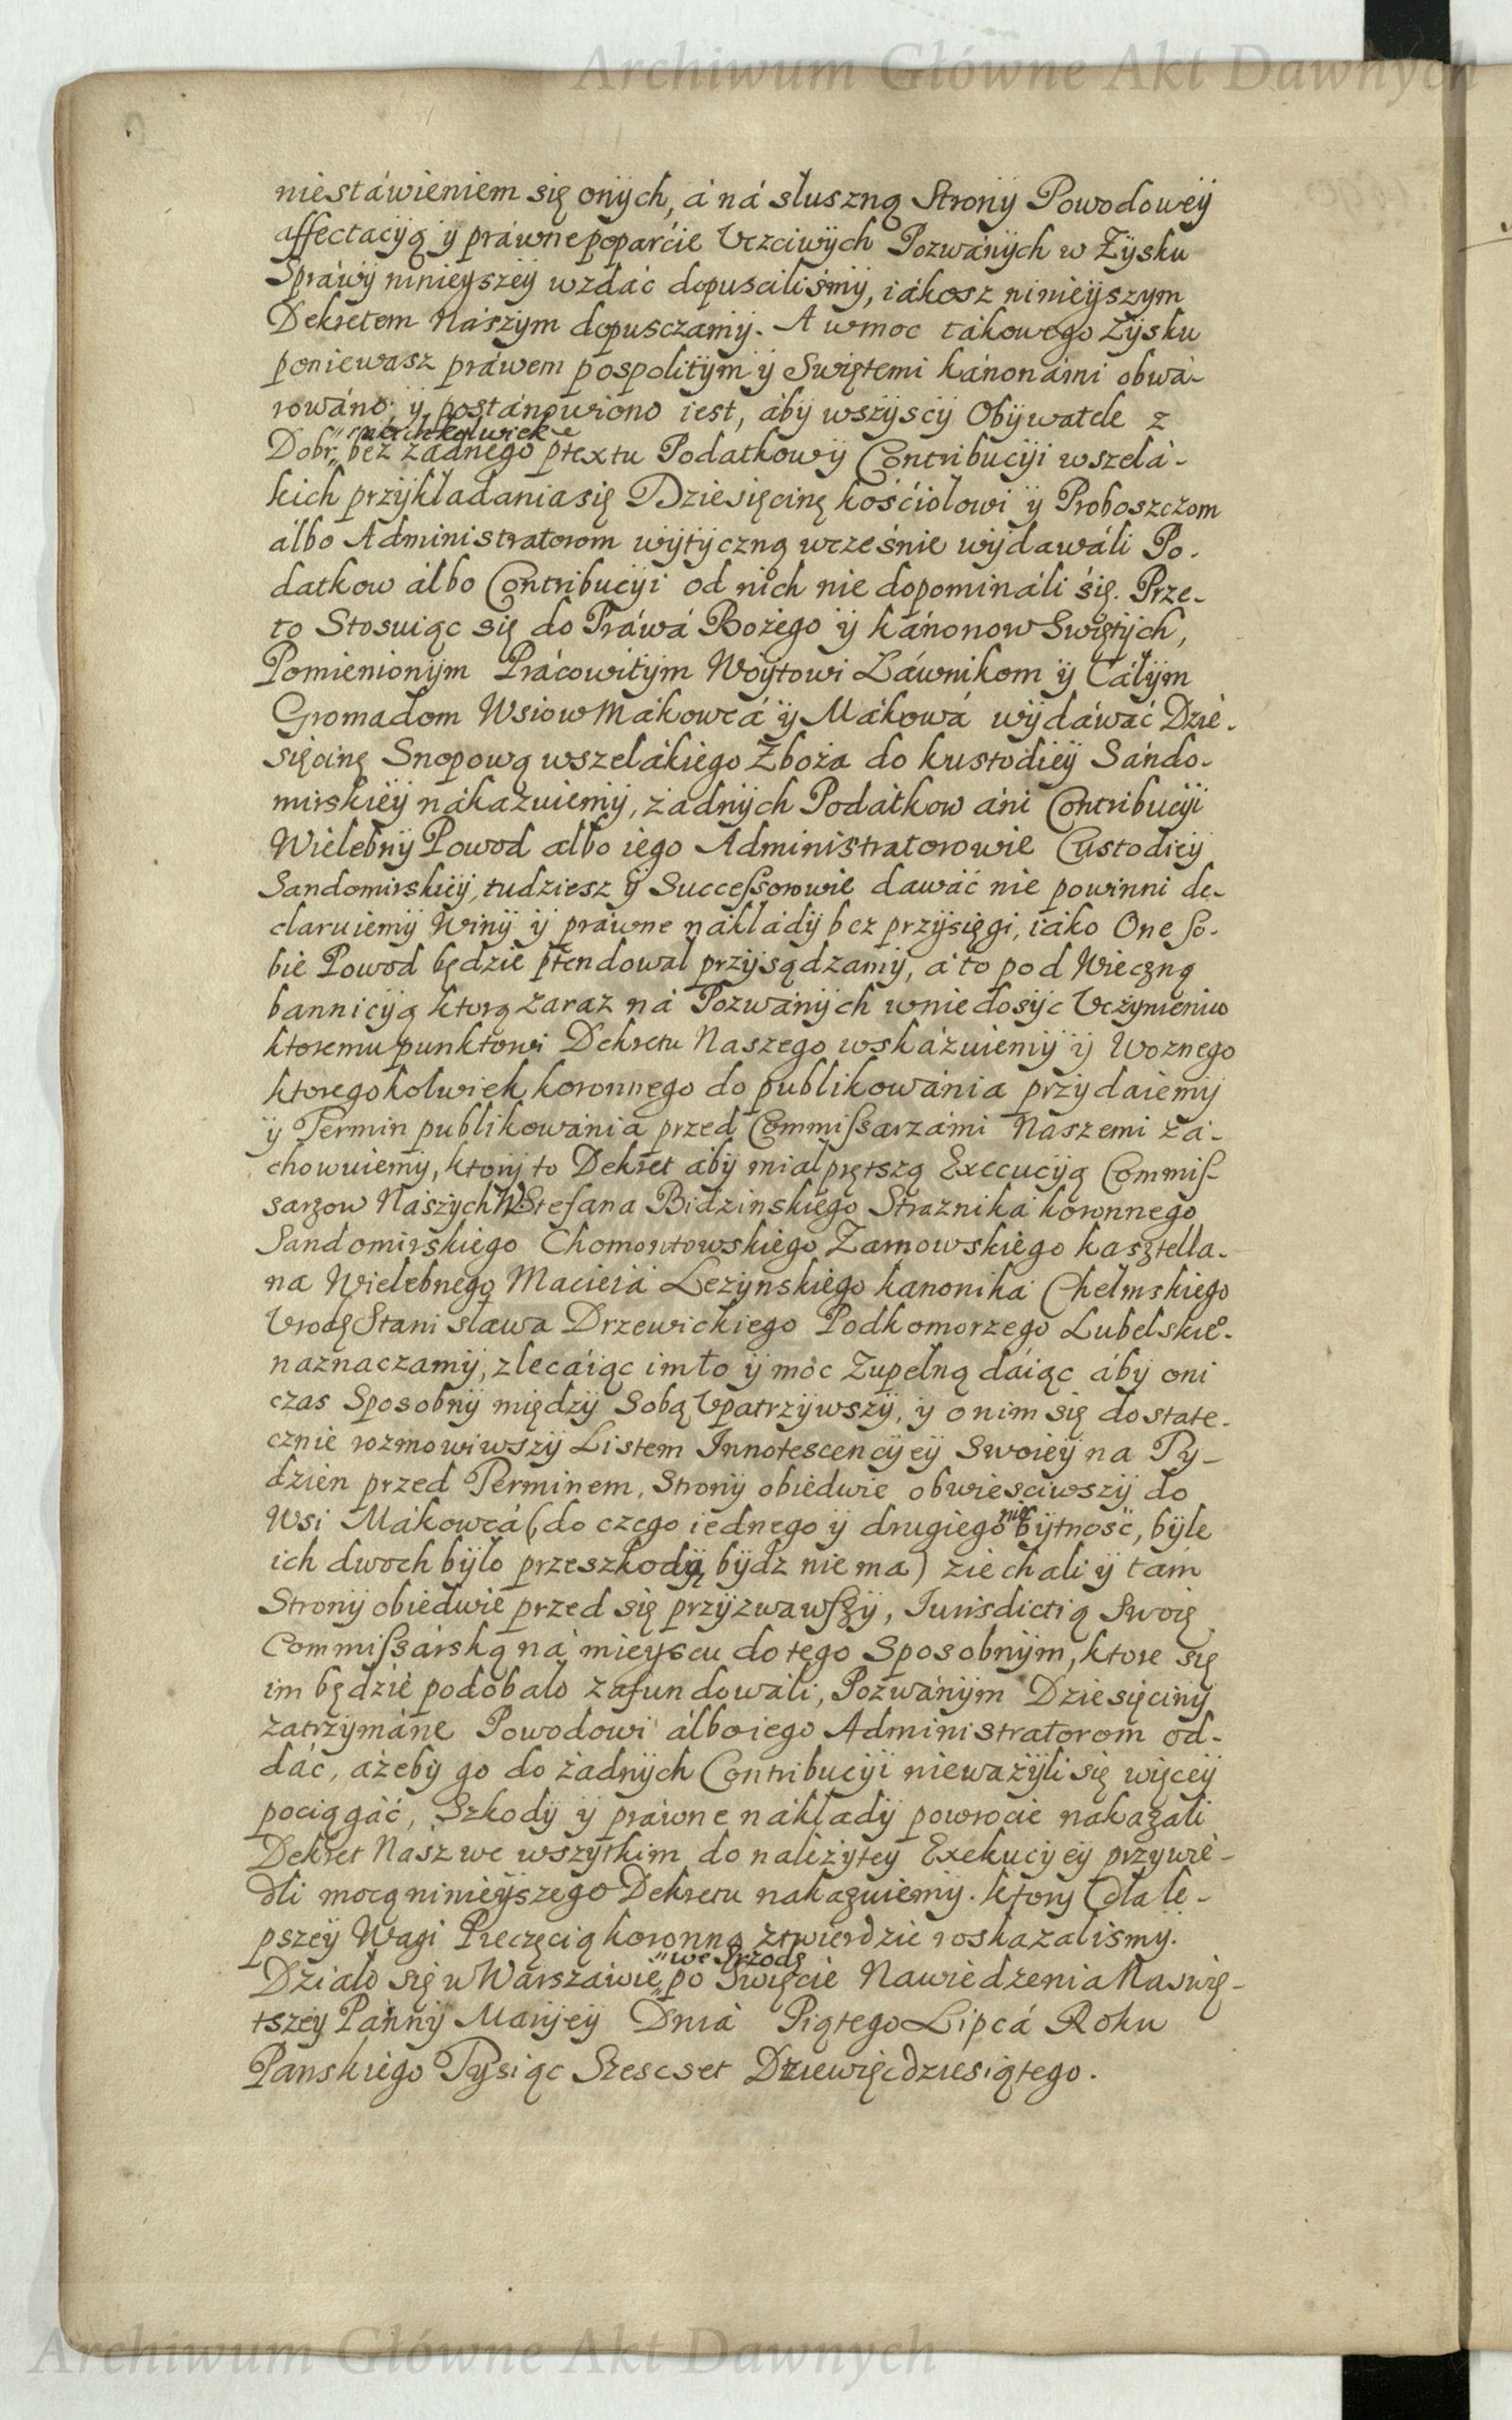 Archiwum Główne Akt Dawnych
niestáwieniem się onÿch, á ná słuszną Stronÿ Powodoweÿ
affectacÿą ÿ práwne poparćie Vczciwÿch Pozwánÿch w Zÿsku
Spráwÿ ninieÿszeÿ wzdáć dopuscilismÿ, iákosz ninieÿszym
Dekretem Nászÿm dopusczamÿ. A w moc tákowego Zÿsku
poniewasz práwem pospolitÿm ÿ Swiętemi kánonámi obwá-
rowáno, ÿ postánowiono iest, ábÿ wszÿscÿ Obÿwatele z
niktichkolwiek
Dobr bez żadnego ptextu Podatkowÿ Contribucÿi wszelá-
kich przÿkładania się Dziesięcinę kośćiołowi ÿ Proboszczom
álbo Administratorom wÿtÿczną wcześnie wÿdawáli Po-
datkow álbo Contribucÿi od nich nie dopomináli śię. Prze-
to Stosuiąc się do Práwá Bożego ÿ kánonow Swiętÿch,
Pomienionÿm Prácowitÿm Woÿtowi Łáwnikom ÿ Cáłÿm
Gromadom Wsiow Mákowcá ÿ Mákowá wÿdáwáć Dzie-
sięcinę Snopową wszelákiego Zboża do kustodieÿ Sándo-
mirskieÿ nákazuiemÿ, żadnÿch Podátkow áni Contribucÿi
Wielebnÿ Powod albo iego Administratorowie Custodieÿ
Sandomirskieÿ, tudziesz ÿ Successorowie dawáć nie powinni de-
claruiemÿ Winÿ ÿ práwne nákładÿ bez przÿsięgi, iáko One so-
bie Powod będzie ptendował przÿsądzamÿ, á to pod Wieczną
bannicÿą ktorą zaraz ná Pozwánÿch w niedosÿc Vczynieniu
ktoremu punktowi Dekretu Naszego wskázuiemÿ ÿ Woznego
ktoregokolwiek koronnego do publikowánia przÿdaiemÿ
ÿ Termin publikowánia przed Commissarzámi Naszemi zá-
chowuiemÿ, ktorÿ to Dekret ábÿ miał prętszą Execucÿą Commis-
sarzow Nászÿch W Stefana Bidzinskiego Strażniká koronnego
Sandomirskiego Chomontowskiego Zarnowskiego kasztella-
na Wielebnego Macieiá Leżynskiego kanoniká Chełmskiego
Vrodz Stanisława Drzewickiego Podkomorzego Lubelskie°
náznaczamÿ, zlecáiąc im to ÿ moc Zupełną dáiąc ábÿ oni
czas Sposobnÿ międzÿ Sobą Vpatrzÿwszÿ, ÿ o nim się dostate-
cznie rozmowiwszÿ Listem Innotescencÿeÿ Swoieÿ na Ty-
dzien przed Terminem, Stronÿ obiedwie obwiesciwszÿ do
Wsi Mákowcá (do czego iednego ÿ drugiego nie bÿtność, bÿle
ich dwoch bÿło przeszkodą bÿdz nie ma) ziechali ÿ tam
Stronÿ obiedwie przed się przÿzwawszÿ, Iurisdictią Swoię
Commissárską ná mieÿscu do tego Sposobnÿm, ktore się
im będzie podobało zafundowáli, Pozwánÿm Dziesięcinÿ
zatrzÿmáne Powodowi álbo iego Administratorom od-
dáć, ażebÿ go do żadnÿch Contribucÿi nieważÿli się więceÿ
pociągáć, Szkodÿ ÿ práwne nákładÿ powrocić nakazali
Dekret Nász we wszÿtkim do należÿteÿ Exekucÿeÿ przÿwie-
dli mocą ninieÿszego Dekretu nakazuiemÿ. ktorÿ dla le-
pszeÿ Wagi Pieczęcią koronną ztwierdzić roskazalismÿ.
we Srzodę
Działo się w Warszáwie po Swięcie Nawiedzenia Naswię-
tszeÿ Pánnÿ Marÿeÿ Dniá Piątego Lipcá Roku
Panskiego Tysiąc Szescset Dziewięcdziesiątego.
Archiwum Główne Akt Dawnych